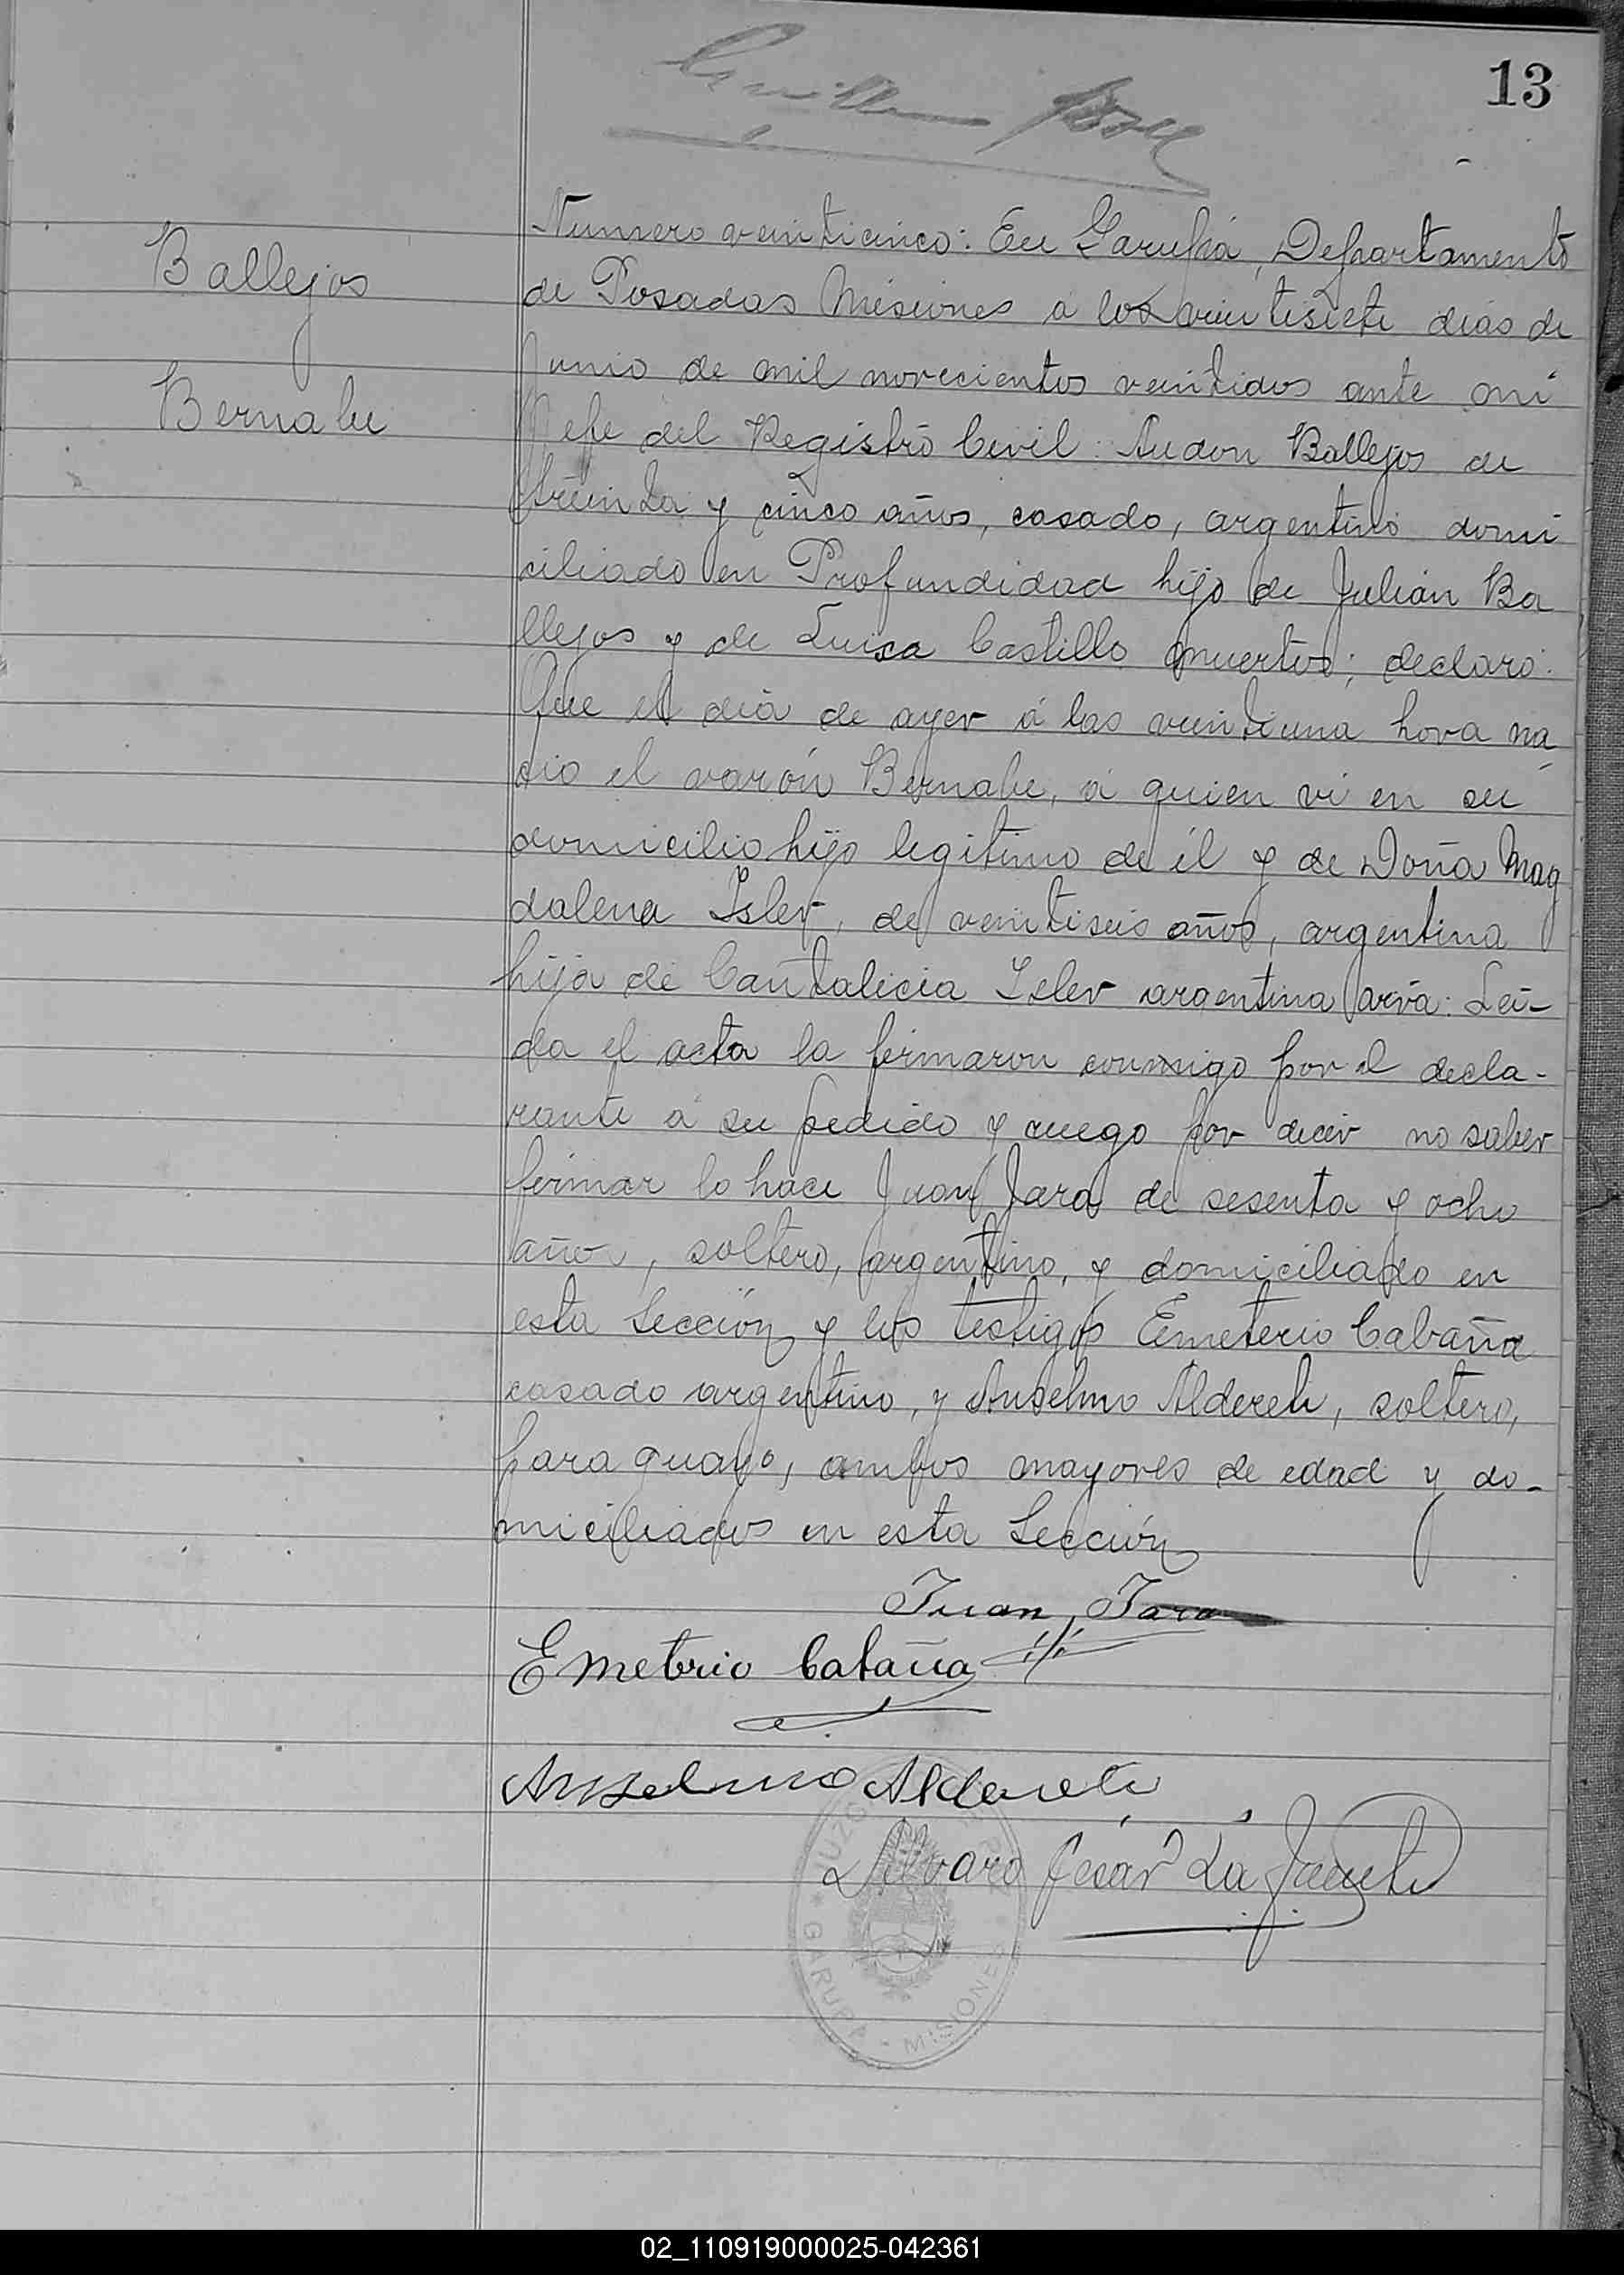 13
Ballejos
Bernabe
Numero veinticinco: En Garupá, Departamento
de Posadas Misiones á los veintisiete dias de
Junio de mil novecientos veintidos ante mi
Jefe del Registro Civil: Audon Ballejos de
treinta y cinco años, casado, argentino domi
ciliado en Profundidad hijo de Julián Ba
llejos y de Luisa Castillo muertos; declaró:
Que el dia de ayer á las veintiuna hora na
cio el varón Bernabe, á quien vi en su
domicilio hijo legitimo de él y de Doña Mag
dalena Isler, de veintiseis años, argentina
hija de Cantalicia Isler argentina : Lei-
da el acta la firmaron conmigo por el decla-
rante a su pedido y ruego por decir no saber
firmar lo hace Juan Jara de sesenta y ocho
años, soltero, argentino, y domiciliado en
esta Sección y los testigos Emeterio Cabaña
casado argentino, y Anselmo Alderete, soltero,
paraguayo, ambos mayores de edad y do-
miciliados en esta Sección
Juan Jara
Emeterio Cabaña
Anselmo Alderete
Alvaro César La
JUZGADO
GARUPA - MISIONES
02_110919000025-042361